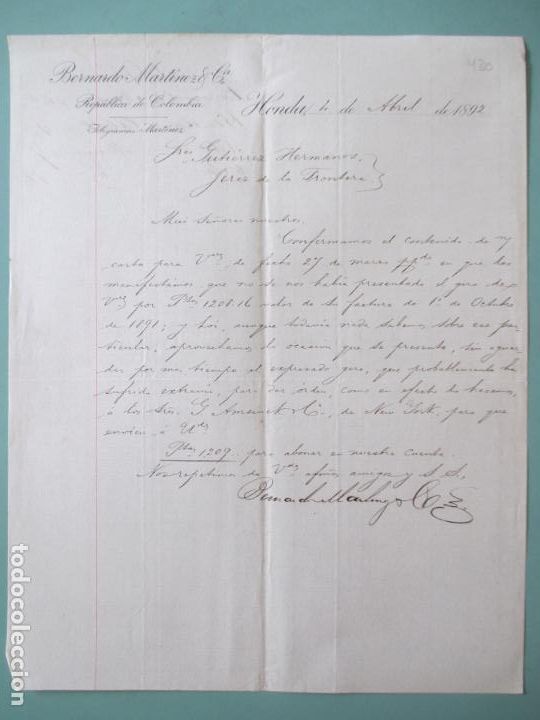 430
Bernardo Martínez & Cª
República de Colombia
Telegramas "Martínez"
Honda, 4 de Abril de 1892
Sres Gutiérrez Hermanos,
Jerez de la Frontera
Mui Señores nuestros:
Confirmamos el contenido de n/
carta para Vdes de fecha 27 de marzo ppdo en que les
manifestámos que no se nos había presentado el giro de
Vdes por Ptas 1208.16 valor de su factura de 1º de Octubre
de 1891; y hoi, aunque todavía nada sabemos sobre ese par-
ticular, aprovechamos la ocasion que se presenta, sin aguar-
dar por mas tiempo el expresado giro, que probablemente ha
sufrido extravío, para dar órden, como en efecto lo hacemos,
á los Sres. G. Amsinck & Co., de New York, para que
envíen á Udes
Ptas 1209 para abonar en nuestra cuenta.
Nos repetimos de Vdes afmos amigos y S. S.
Bernardo Martínez & Cª
todocoleccion